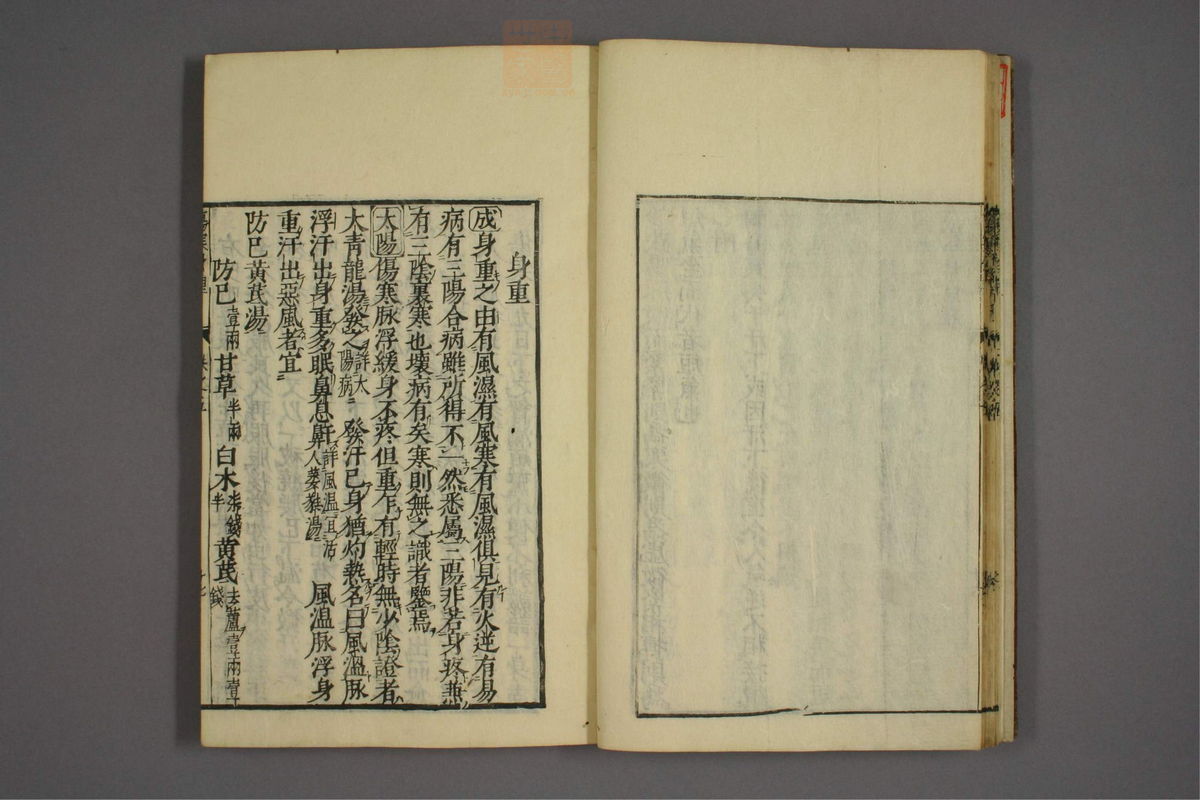 身重
成身重之由有風濕有風寒有風濕俱見有火逆有易
病有三陽合病雖所得不一然悉屬三陽非若身疼兼
有三陰裏寒也壞病有矣寒則無之識者鑒焉
太陽傷寒脉浮緩身不疼但重乍有輕時無少陰證者
大青龍湯發之詳大陽病 發汗已身猶灼熱名曰風溫脉
浮汗出身重多眠鼻息鼾詳風溫宜活人葳蕤湯 風溫脉浮身
重汗出惡風者宜
防己黃芪湯
防己壹兩甘草半兩白朮柒錢半黃芪去蘆壹兩壹錢